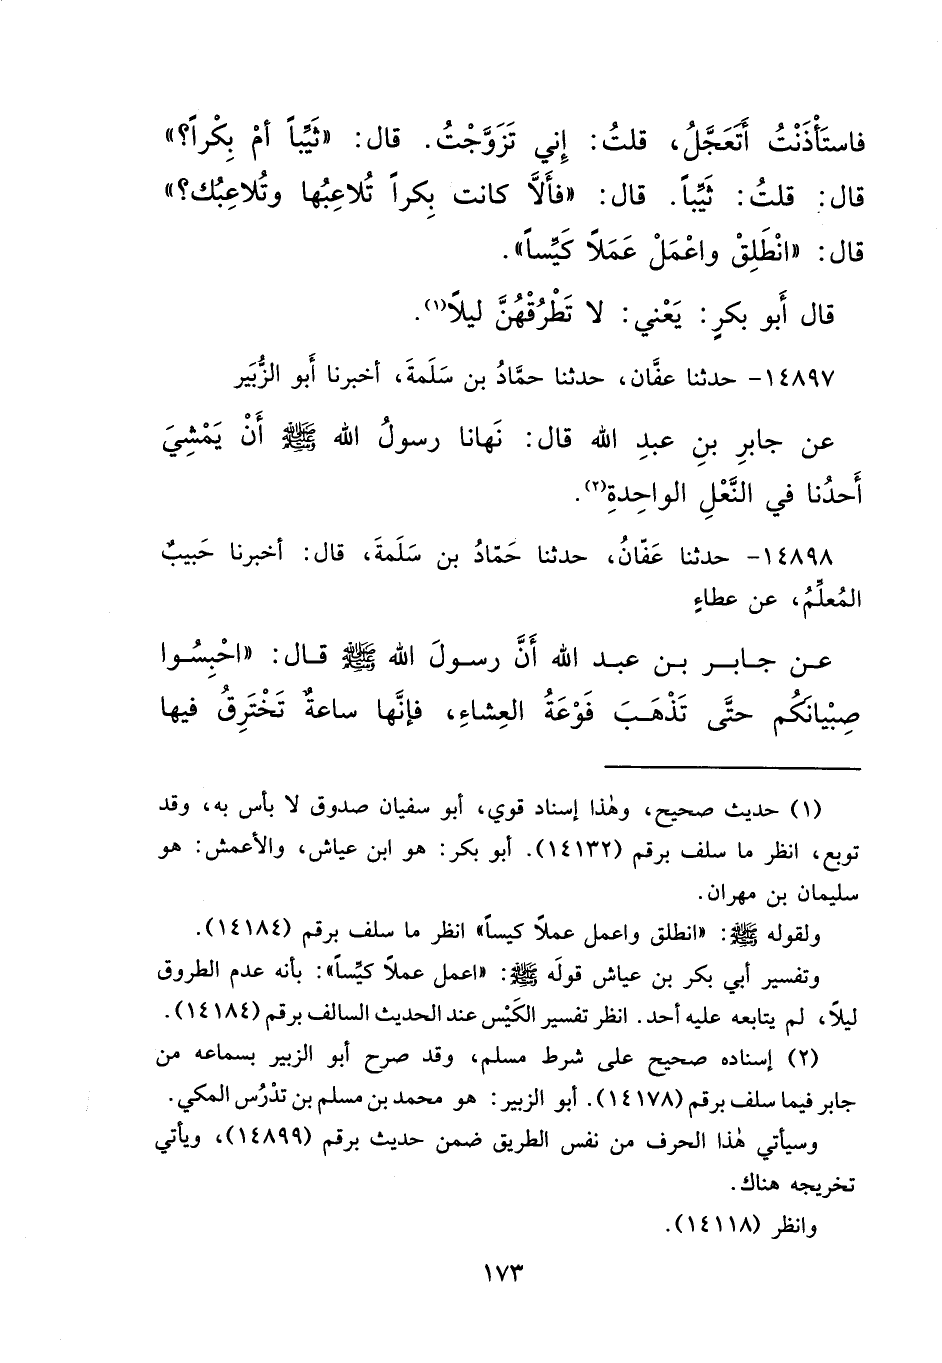 فاستَأْذَنْتُ أَتَعَجَّلُ، قلتُ: إِني تَزَوَّجْتُ. قال: «ثَيِّباً أمْ بِكْراً؟»
قال: قلتُ: ثَيِّباً. قال: «فأَلاَّ كانت بِكراً تُلاعِبُها وتُلاعِبُك؟»
قال: «انْطَلِقْ واعْمَلْ عَمَلاً كَيِّساً».
قال أَبو بكرٍ: يَعْني: لا تَطْرُقْهُنَّ ليلاً(١).
١٤٨٩٧- حدثنا عفَّان، حدثنا حمَّادُ بن سَلَمةَ، أخبرنا أَبو الزُّبَير
عن جابرِ بنِ عبدِ الله قال: نَهانا رسولُ الله ﷺ أَنْ يَمْشِيَ
أَحدُنا في النَّعْلِ الواحِدةِ(٢).
١٤٨٩٨- حدثنا عَفّانُ، حدثنا حَمّادُ بن سَلَمةَ، قال: أخبرنا حَبيبٌ
المُعلِّمُ، عن عطاءٍ
عن جابر بن عبد الله أَنَّ رسولَ الله ﷺ قال: «احْبِسُوا
صِبْيانَكُم حتَّى تَذْهَبَ فَوْعَةُ العِشاءِ، فإنَّها ساعةٌ تَخْتَرِقُ فيها
(١) حديث صحيح، وهٰذا إسناد قوي، أبو سفيان صدوق لا بأس به، وقد
توبع، انظر ما سلف برقم (١٤١٣٢). أبو بكر: هو ابن عياش، والأعمش: هو
سليمان بن مهران.
ولقوله ﷺ: «انطلق واعمل عملاً كيساً» انظر ما سلف برقم (١٤١٨٤).
وتفسير أبي بكر بن عياش قولَه ﷺ: «اعمل عملاً كيِّساً»: بأنه عدم الطروق
ليلاً، لم يتابعه عليه أحد. انظر تفسير الكَيْس عند الحديث السالف برقم (١٤١٨٤).
(٢) إسناده صحيح على شرط مسلم، وقد صرح أبو الزبير بسماعه من
جابر فيما سلف برقم (١٤١٧٨). أبو الزبير: هو محمد بن مسلم بن تَدْرُس المكي.
وسيأتي هٰذا الحرف من نفس الطريق ضمن حديث برقم (١٤٨٩٩)، ويأتي
تخريجه هناك.
وانظر (١٤١١٨).
١٧٣